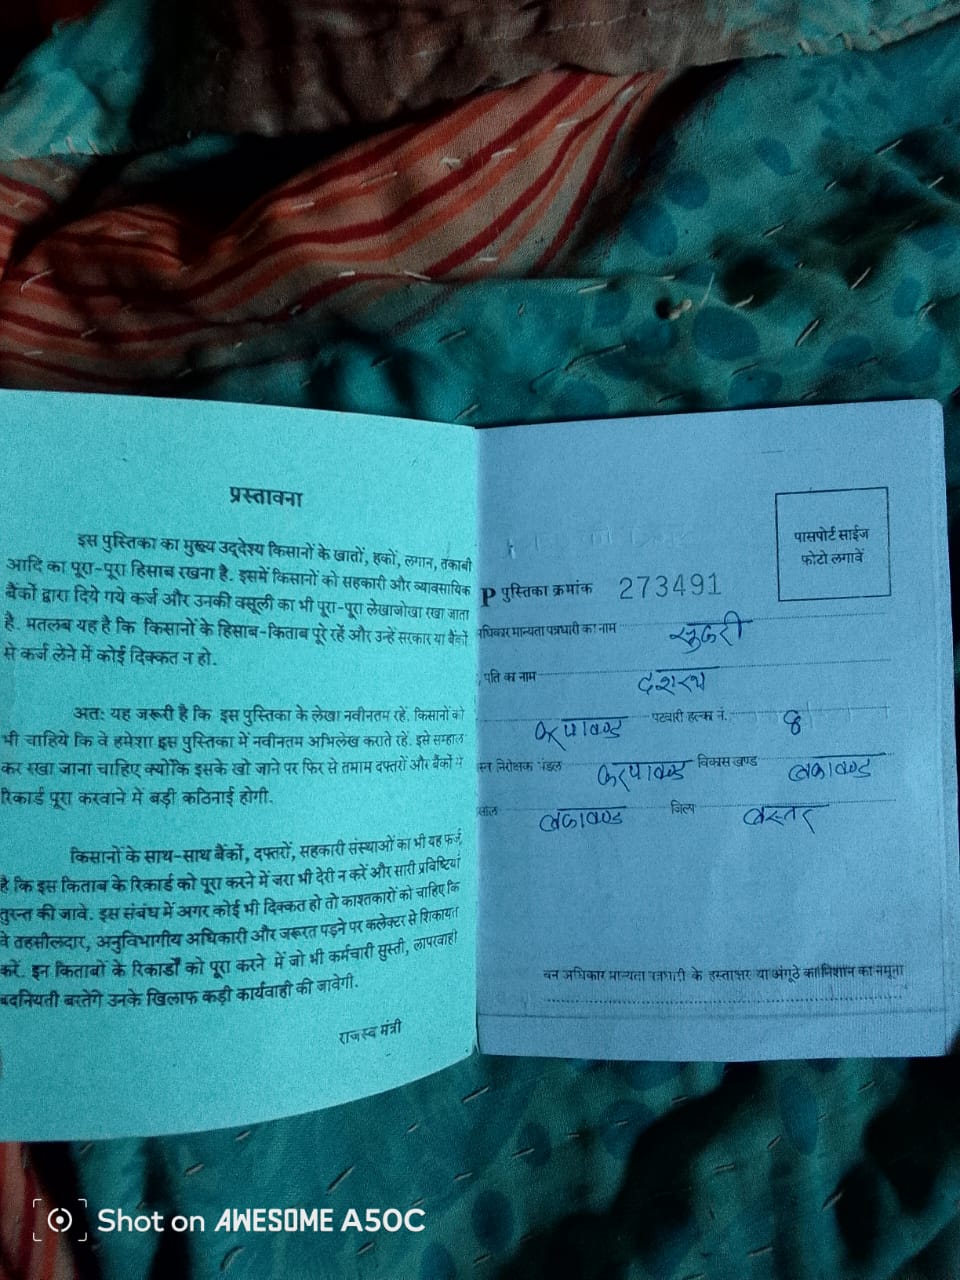 प्रस्तावना
इस पुस्तिका का मुख्य उद्देश्य किसानों के खातों, हकों, लगान, तकाबी
आदि का पूरा-पूरा हिसाब रखना है. इसमें किसानों को सहकारी और व्यावसायिक
बैंकों द्वारा दिये गये कर्ज और उनकी वसूली का भी पूरा-पूरा लेखाजोखा रखा जाता
है. मतलब यह है कि किसानों के हिसाब-किताब पूरे रहें और उन्हें सरकार या बैंकों
से कर्ज लेने में कोई दिक्कत न हो.
अतः यह जरूरी है कि इस पुस्तिका के लेखा नवीनतम रहें. किसानों को
भी चाहिये कि वे हमेशा इस पुस्तिका में नवीनतम अभिलेख कराते रहें. इसे सम्हाल
कर रखा जाना चाहिए क्योंकि इसके खो जाने पर फिर से तमाम दफ्तरों और बैंकों से
रिकार्ड पूरा करवाने में बड़ी कठिनाई होगी.
किसानों के साथ-साथ बैंकों, दफ्तरों, सहकारी संस्थाओं का भी यह फर्ज
है कि इस किताब के रिकार्ड को पूरा करने में जरा भी देरी न करें और सारी प्रविष्टियां
तुरन्त की जावे. इस संबंध में अगर कोई भी दिक्कत हो तो काश्तकारों को चाहिए कि
वे तहसीलदार, अनुविभागीय अधिकारी और जरूरत पड़ने पर कलेक्टर से शिकायत
करें. इन किताबों के रिकार्डों को पूरा करने में जो भी कर्मचारी सुस्ती, लापरवाही
बदनियती बरतेंगे उनके खिलाफ कड़ी कार्यवाही की जावेगी.
राजस्व मंत्री
पासपोर्ट साईज
फोटो लगावें
P पुस्तिका क्रमांक 273491
अधिकार मान्यता पत्रधारी का नाम सुकरी
, पति का नाम दशरथ
करपावण्ड पटवारी हल्का नं. 8
निरीक्षक मंडल करपावण्ड विकास खण्ड बकावण्ड
सील बकावण्ड जिला बस्तर
वन अधिकार मान्यता पत्रधारी के हस्ताक्षर या अंगूठे का निशान का नमूना
Shot on AWESOME A50C